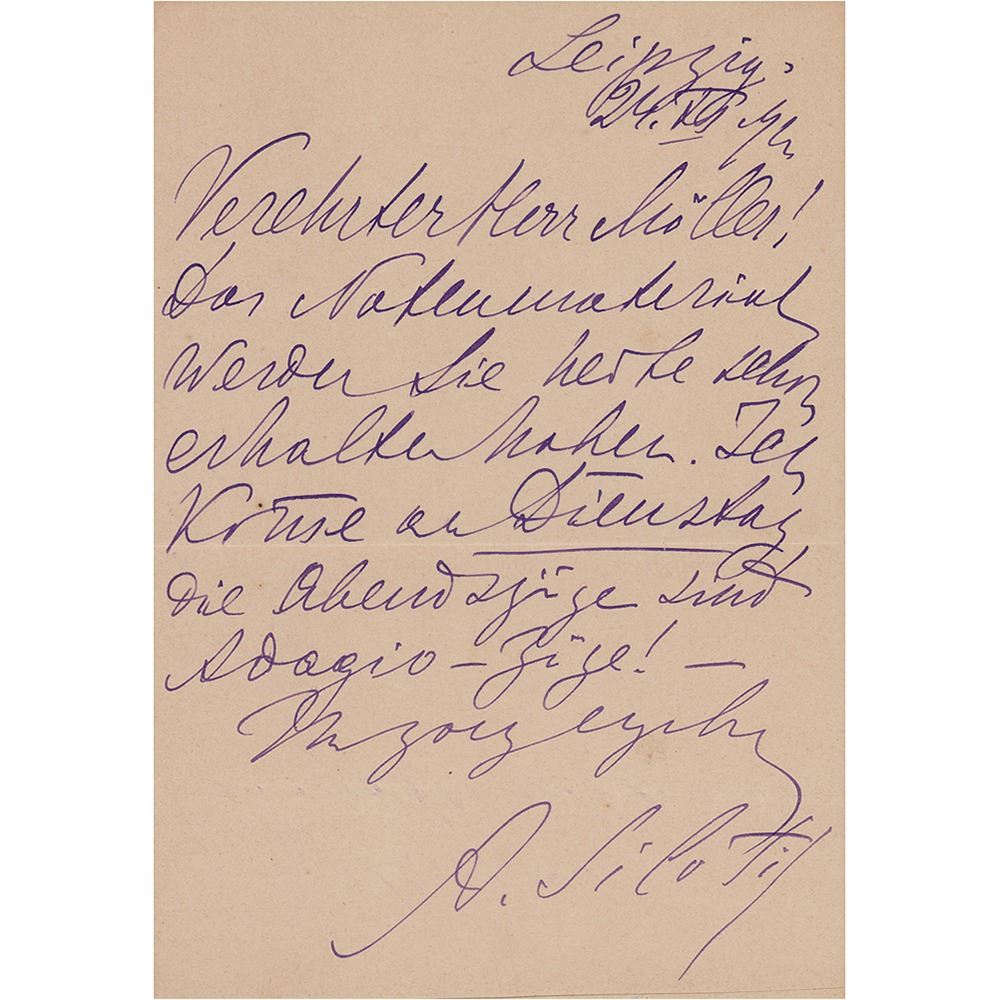 Leipzig.
24.
Verehrter Herr Möller!
Das Notenmaterial
werden Sie heute schon
erhalten haben. Ich
komme am Dienstag
die Abendzüge sind
Adagio – Züge! –
Ihr ganz ergeb.
A. Siloti